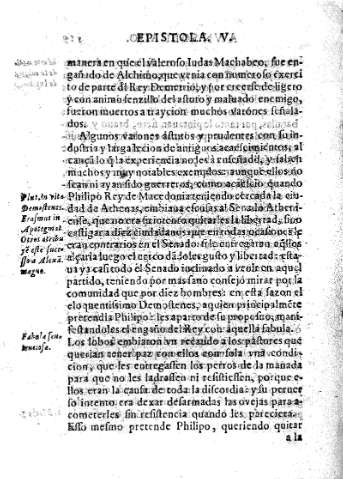 EPISTOLA. V.
manera en que el valeroso Iudas Machabeo, fue en-
gañado de Alchimo, que venia con numeroso exerci
to de parte del Rey Demetrio, y por creerse de ligero
y con animo senzillo del astuto y maluado enemigo,
fueron muertos a traycion muchos varones señala-
dos.
Algunos varones astutos y prudentes con su in-
dustria y larga lecion de antiguos acaescimientos, al
cançã lo q̃ la experiencia no les à enseñado, y salen
machos y muy notables exemplos: aunque ellos no
sean ni ayan sido guerreros, como acaescio quando
Philipo Rey de Macedonia teniendo cercada la ciu
dad de Athenas, embiana el Senado Athenié-
se, que no era su intento quitarles la libertad, sino
castigar a diez ciudadanos que en todas ocasiones le
eran contrarios en el Senado: si le entregauan aq̃llos
alçaria luego el cerco dãdoles gusto y libertad: esta-
ua ya casi todo el Senado inclinado a venir en aquel
partido, teniendo por mas sano consejo mirar por la
comunidad que por diez hombres: en esta sazon el
eloquentissimo Demostenes, a quien principalmẽte
pretendia Philipo: les aparto de su proposito, mani-
festandoles el engaño del Rey con aquella fabula.
Los lobos embiaron vn recaudo a los pastores que
querian tener paz con ellos con sola vna condi-
cion, que les entregassen los perros de la manada
para que no les ladrassen ni resistiessen, porque e-
llos eran la causa de toda la discordia: y su peruer
so intento era dexar desarmadas las ovejas para a-
cometerles sin resistencia quando les pareciera.
Esso mesmo pretende Philipo, queriendo quitar
a la
Plut. in vita
Demostenes.
Erasmus in
Apotegmat.
Otros atribu
yẽ este suce
sso a Alexã.
magno.
Fabula sen-
tenciosa.